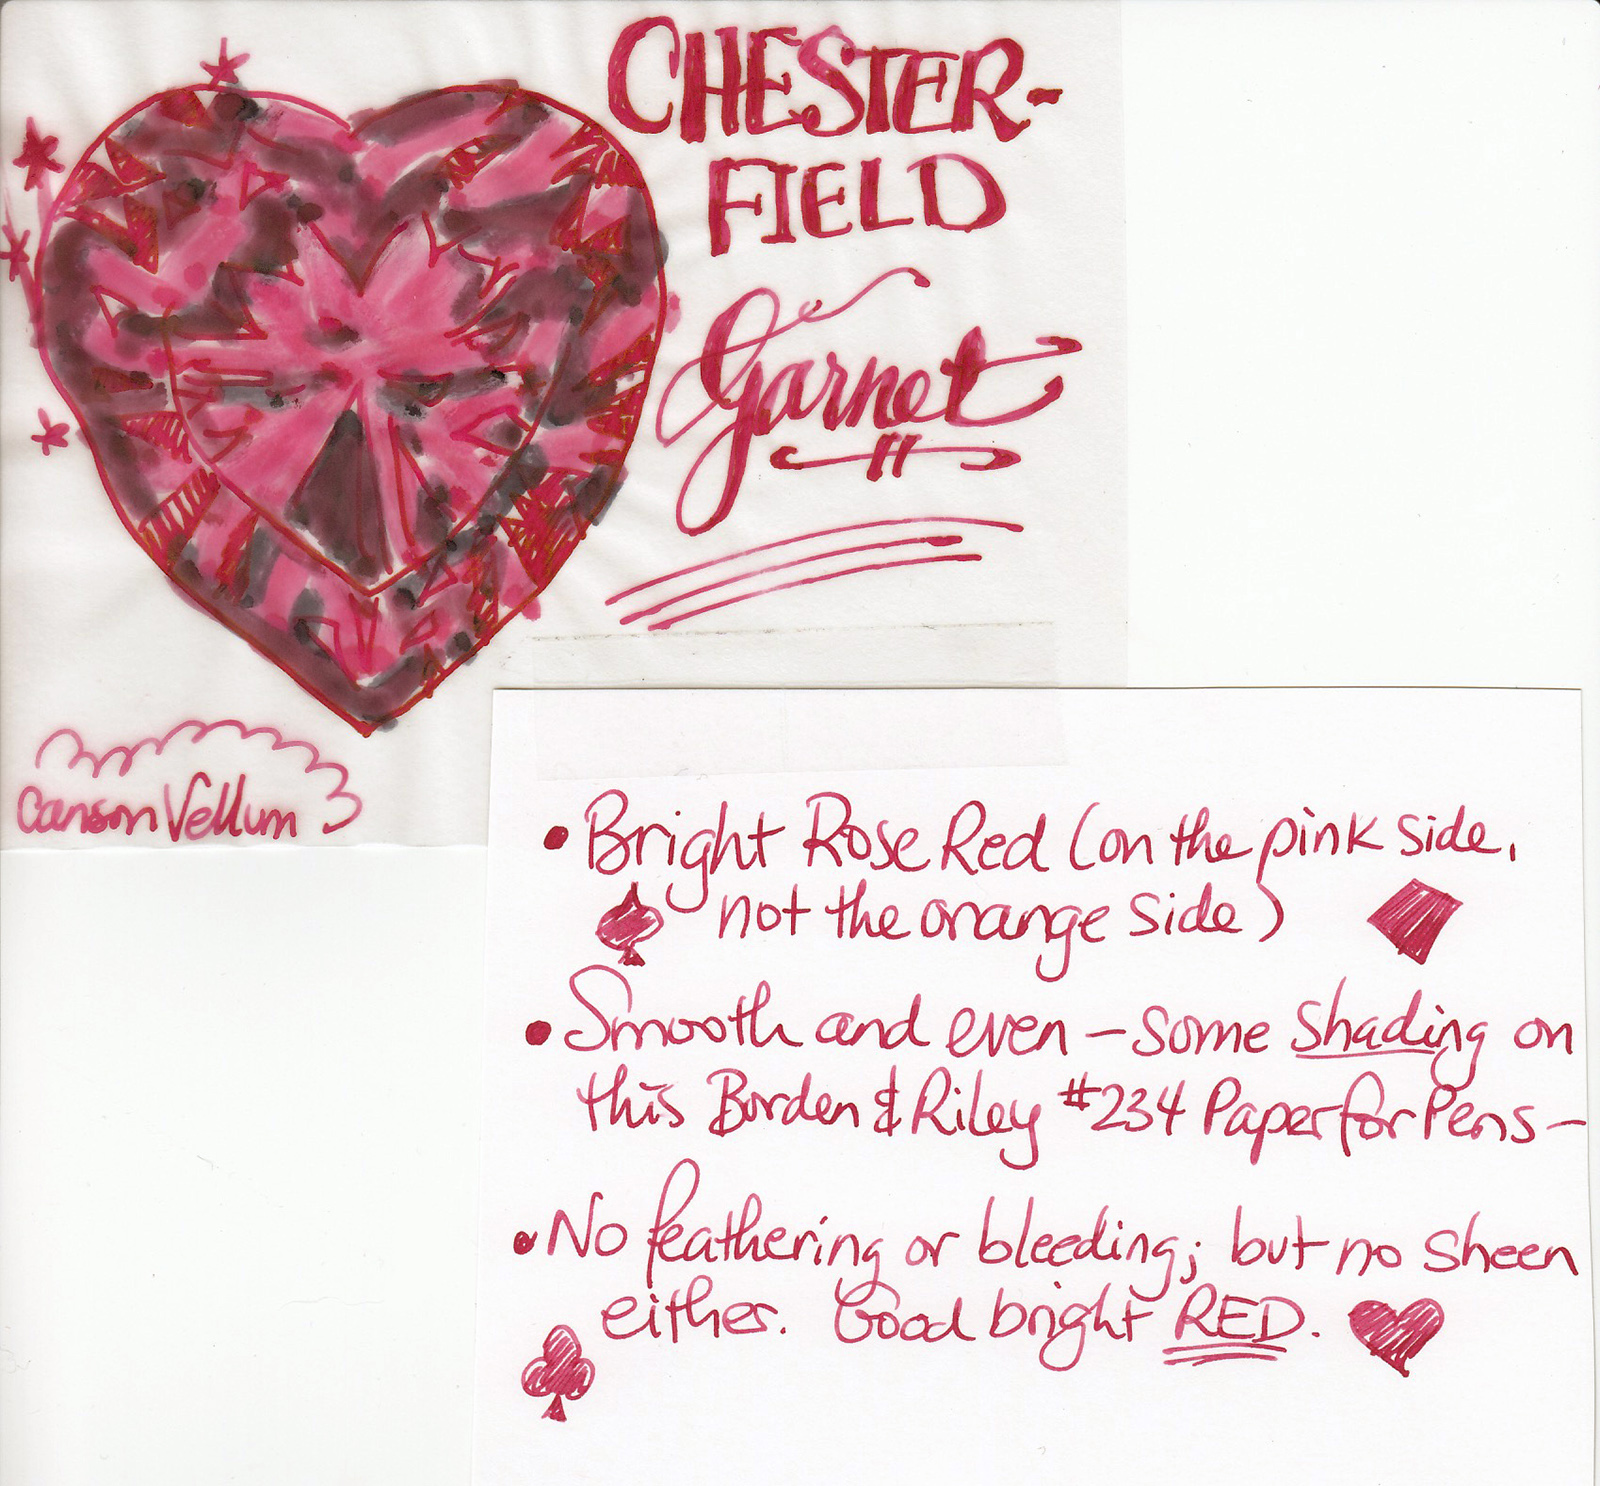 CHESTER-
FIELD
Garnet
Canson Vellum
• Bright Rose Red (on the pink side,
not the orange side)
• Smooth and even – some shading on
this Borden & Riley #234 Paper for Pens –
• No feathering or bleeding; but no sheen
either. Good bright RED.